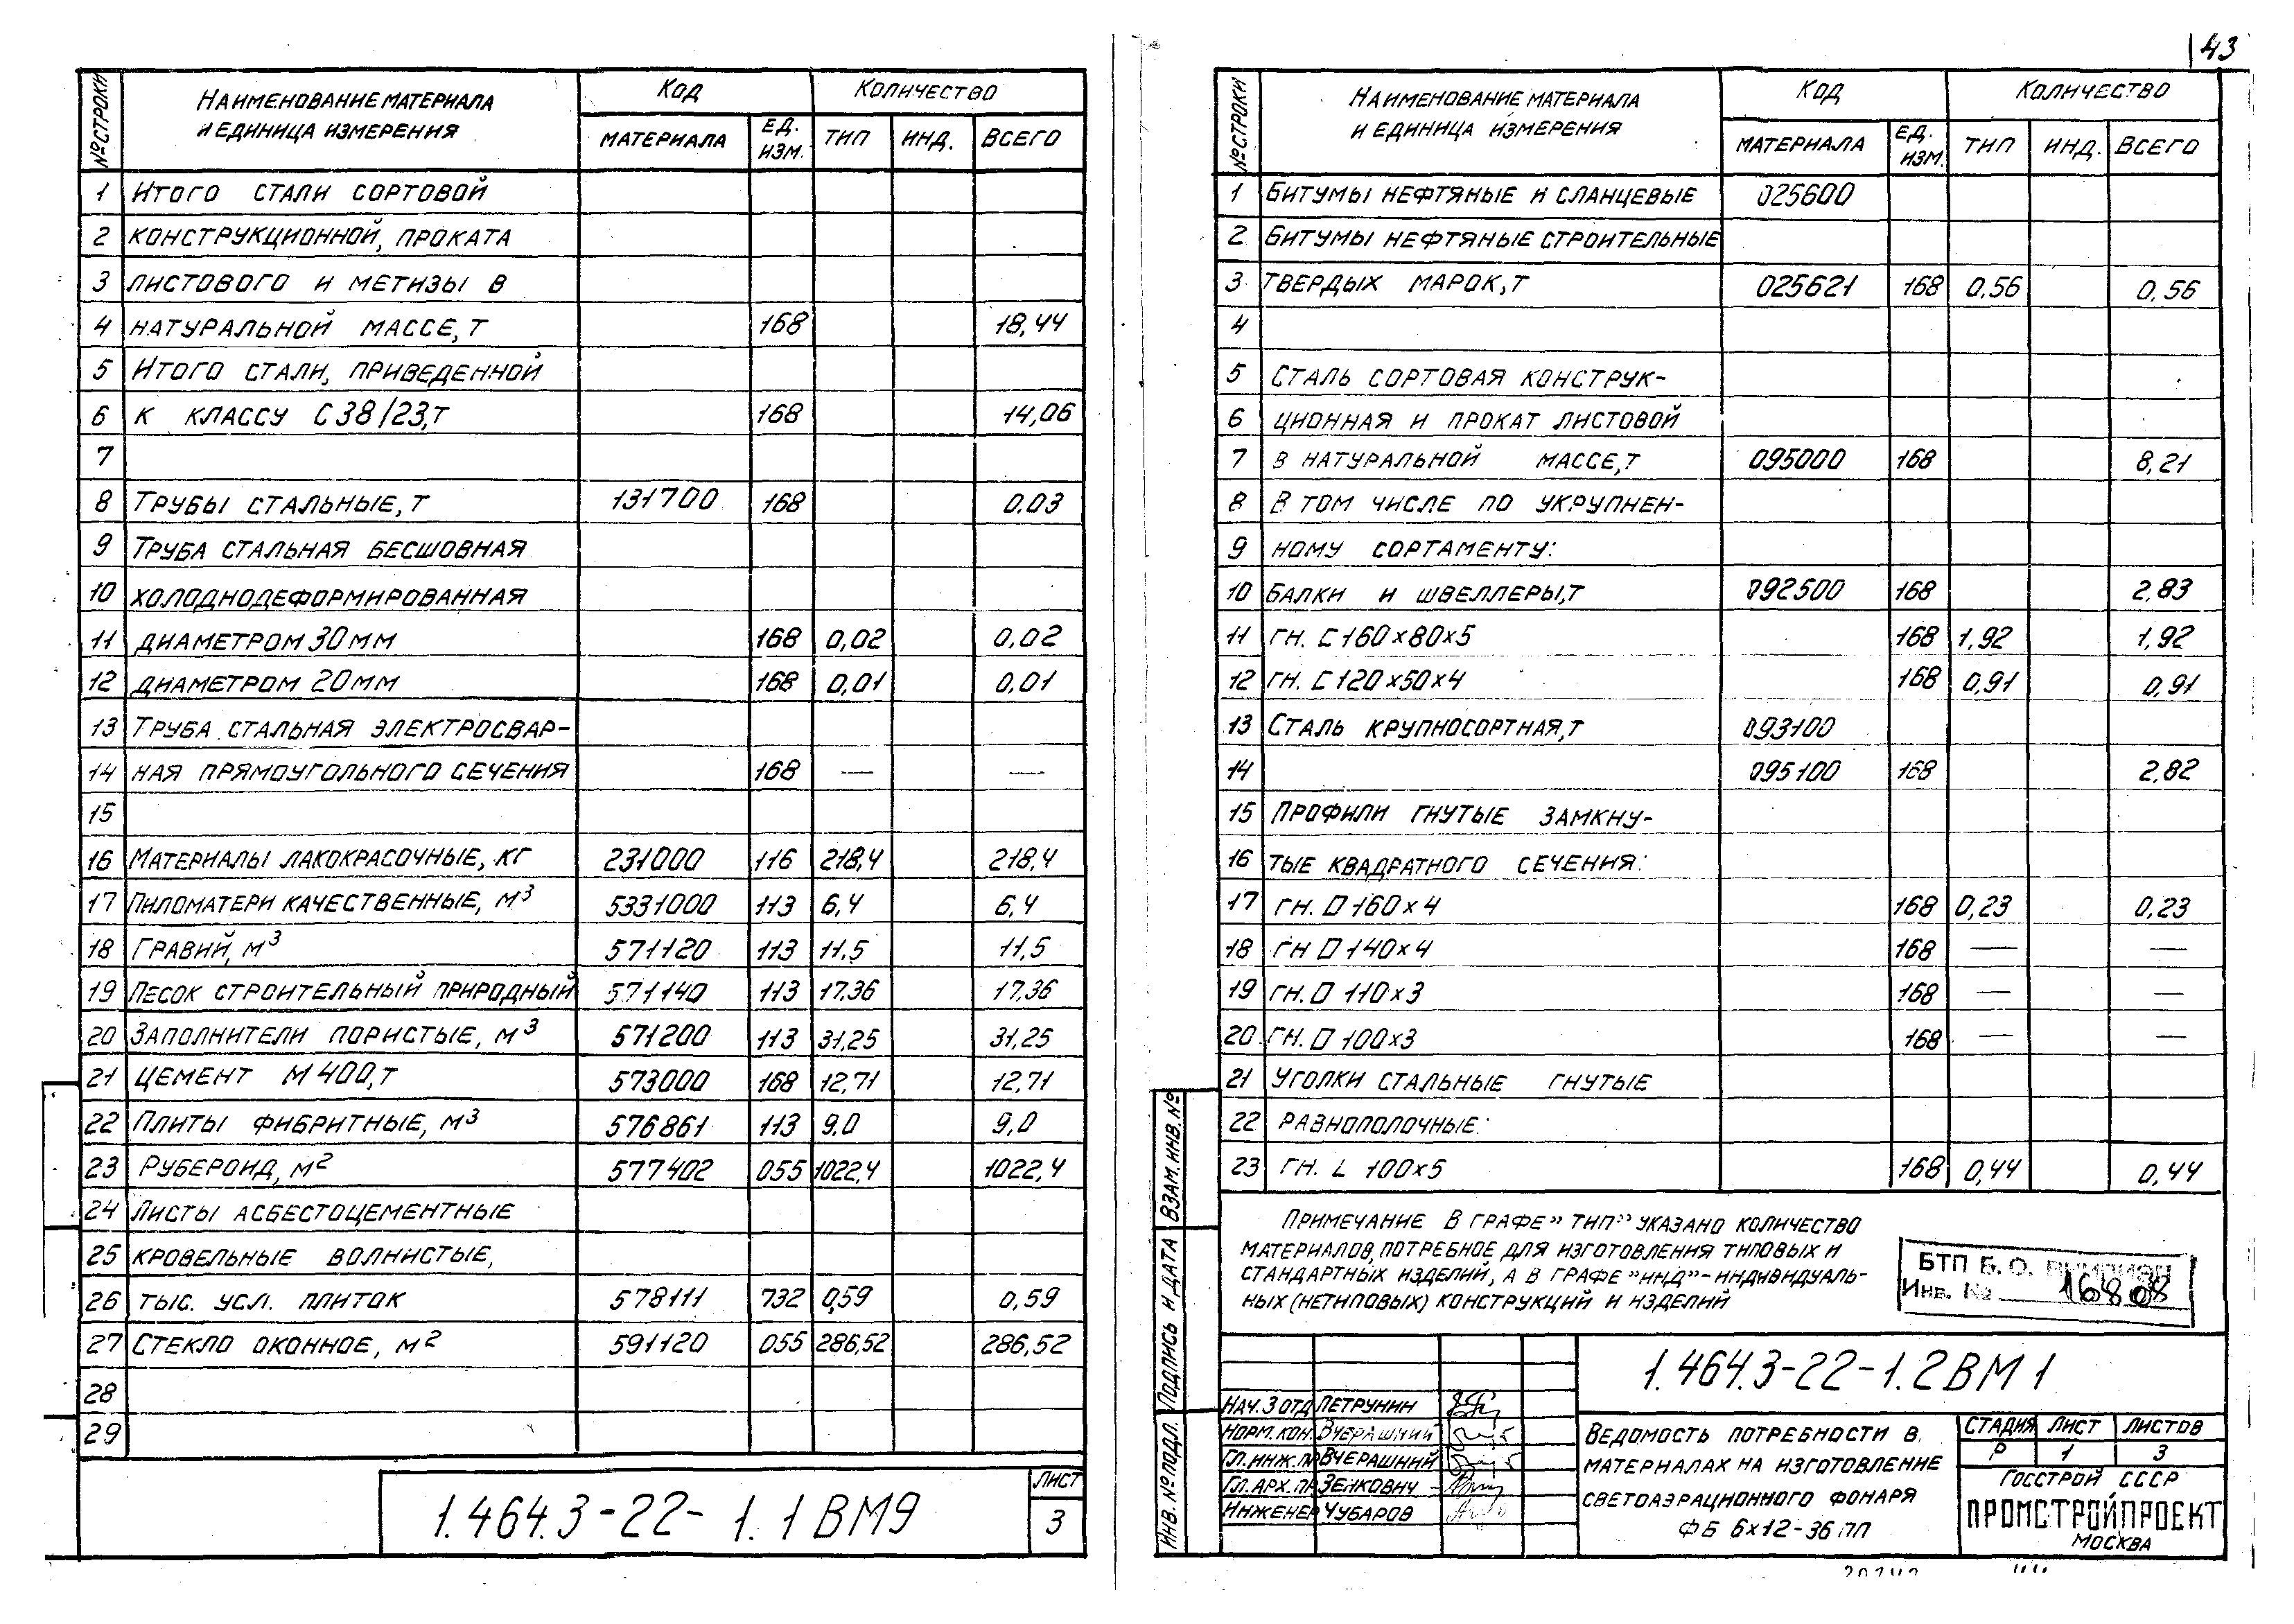 43
№ СТРОКИ | НАИМЕНОВАНИЕ МАТЕРИАЛА И ЕДИНИЦА ИЗМЕРЕНИЯ | КОД | КОЛИЧЕСТВО
МАТЕРИАЛА | ЕД. ИЗМ. | ТИП | ИНД. | ВСЕГО
1 ИТОГО СТАЛИ СОРТОВОЙ
2 КОНСТРУКЦИОННОЙ, ПРОКАТА
3 ЛИСТОВОГО И МЕТИЗЫ В
4 НАТУРАЛЬНОЙ МАССЕ, Т 168 18,44
5 ИТОГО СТАЛИ, ПРИВЕДЕННОЙ
6 К КЛАССУ С 38/23, Т 168 14,06
7
8 ТРУБЫ СТАЛЬНЫЕ, Т 131700 168 0.03
9 ТРУБА СТАЛЬНАЯ БЕСШОВНАЯ
10 ХОЛОДНОДЕФОРМИРОВАННАЯ
11 ДИАМЕТРОМ 30 ММ 168 0,02 0,02
12 ДИАМЕТРОМ 20 ММ 168 0,01 0,01
13 ТРУБА СТАЛЬНАЯ ЭЛЕКТРОСВАР-
14 НАЯ ПРЯМОУГОЛЬНОГО СЕЧЕНИЯ 168 — —
15
16 МАТЕРИАЛЫ ЛАКОКРАСОЧНЫЕ, КГ 231000 116 218,4 218,4
17 ПИЛОМАТЕРИ КАЧЕСТВЕННЫЕ, М³ 5331000 113 6,4 6,4
18 ГРАВИЙ, М³ 571120 113 11,5 11,5
19 ПЕСОК СТРОИТЕЛЬНЫЙ ПРИРОДНЫЙ 571140 113 17.36 17,36
20 ЗАПОЛНИТЕЛИ ПОРИСТЫЕ, М³ 571200 113 31,25 31,25
21 ЦЕМЕНТ М 400, Т 573000 168 12,71 12,71
22 ПЛИТЫ ФИБРИТНЫЕ, М³ 576861 113 9.0 9,0
23 РУБЕРОИД, М² 577402 055 1022,4 1022,4
24 ЛИСТЫ АСБЕСТОЦЕМЕНТНЫЕ
25 КРОВЕЛЬНЫЕ ВОЛНИСТЫЕ,
26 ТЫС. УСЛ. ПЛИТОК 578111 732 0,59 0,59
27 СТЕКЛО ОКОННОЕ, М² 591120 055 286,52 286,52
28
29
1.464.3-22-1.1 ВМ9
ЛИСТ
3
№ СТРОКИ | НАИМЕНОВАНИЕ МАТЕРИАЛА И ЕДИНИЦА ИЗМЕРЕНИЯ | КОД | КОЛИЧЕСТВО
МАТЕРИАЛА | ЕД. ИЗМ. | ТИП | ИНД. | ВСЕГО
1 БИТУМЫ НЕФТЯНЫЕ И СЛАНЦЕВЫЕ 025600
2 БИТУМЫ НЕФТЯНЫЕ СТРОИТЕЛЬНЫЕ
3 ТВЕРДЫХ МАРОК, Т 025621 168 0,56 0,56
4
5 СТАЛЬ СОРТОВАЯ КОНСТРУК-
6 ЦИОННАЯ И ПРОКАТ ЛИСТОВОЙ
7 В НАТУРАЛЬНОЙ МАССЕ, Т 095000 168 8,21
8 В ТОМ ЧИСЛЕ ПО УКРУПНЕН-
9 НОМУ СОРТАМЕНТУ:
10 БАЛКИ И ШВЕЛЛЕРЫ, Т 092500 168 2,83
11 ГН. [ 160×80×5 168 1,92 1,92
12 ГН. [ 120×50×4 168 0,91 0,91
13 СТАЛЬ КРУПНОСОРТНАЯ, Т 093100
14 095100 168 2,82
15 ПРОФИЛИ ГНУТЫЕ ЗАМКНУ-
16 ТЫЕ КВАДРАТНОГО СЕЧЕНИЯ:
17 ГН. □ 160×4 168 0,23 0,23
18 ГН □ 140×4 168 — —
19 ГН. □ 110×3 168 — —
20 ГН. □ 100×3 168 — —
21 УГОЛКИ СТАЛЬНЫЕ ГНУТЫЕ
22 РАВНОПОЛОЧНЫЕ:
23 ГН. L 100×5 168 0,44 0,44
ПРИМЕЧАНИЕ В ГРАФЕ "ТИП" УКАЗАНО КОЛИЧЕСТВО
МАТЕРИАЛОВ, ПОТРЕБНОЕ ДЛЯ ИЗГОТОВЛЕНИЯ ТИПОВЫХ И
СТАНДАРТНЫХ ИЗДЕЛИЙ, А В ГРАФЕ "ИНД"-ИНДИВИДУАЛЬ-
НЫХ (НЕТИПОВЫХ) КОНСТРУКЦИЙ И ИЗДЕЛИЙ
БТП Б. О.
Инв. № 16808
ВЗАМ. ИНВ. №
ПОДПИСЬ И ДАТА
ИНВ. № ПОДЛ.
1.464.3-22-1.2 ВМ 1
НАЧ. 3 ОТД ПЕТРУНИН
НОРМ. КОН. ВЧЕРАШНИЙ
ГЛ. ИНЖ. ПР ВЧЕРАШНИЙ
ГЛ. АРХ. ПР. ЗЕНКОВИЧ
ИНЖЕНЕР ЧУБАРОВ
ВЕДОМОСТЬ ПОТРЕБНОСТИ В
МАТЕРИАЛАХ НА ИЗГОТОВЛЕНИЕ
СВЕТОАЭРАЦИОННОГО ФОНАРЯ
ФБ 6×12-36 ПП
СТАДИЯ ЛИСТ ЛИСТОВ
Р 1 3
ГОССТРОЙ СССР
ПРОМСТРОЙПРОЕКТ
МОСКВА